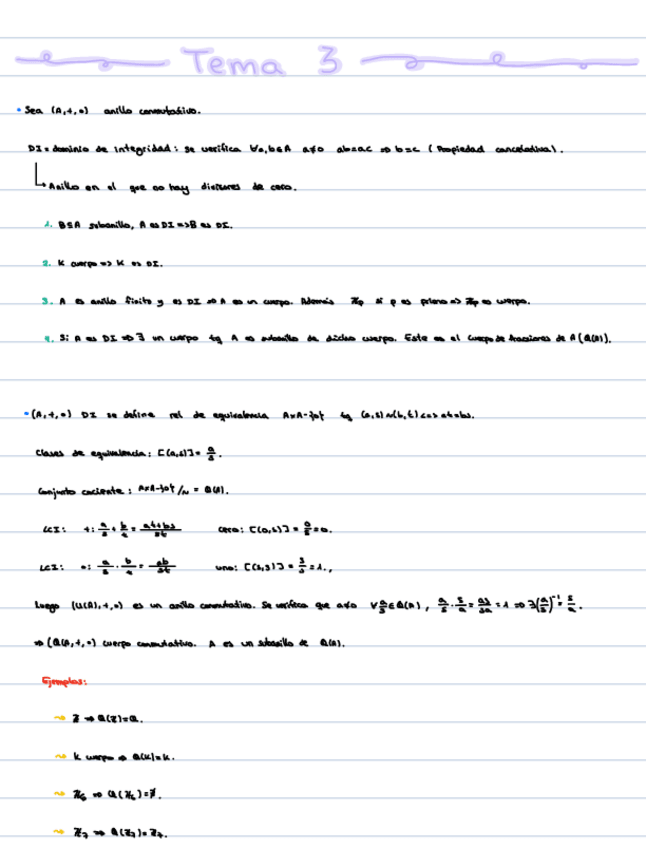 Tema 3
• Sea (A,+,∘) anillo conmutativo.
DI = dominio de integridad: se verifica ∀a,b∈A a≠0 ab=ac ⇒ b=c (Propiedad cancelativa).
Anillo en el que no hay divisores de cero.
1. B≤A subanillo, A es DI ⇒ B es DI.
2. K cuerpo ⇒ K es DI.
3. A es anillo finito y es DI ⇒ A es un cuerpo. Además ℤp si p es primo ⇒ ℤp es cuerpo.
4. Si A es DI ⇒ ∃ un cuerpo tq A es subanillo de dicho cuerpo. Este es el cuerpo de fracciones de A (Q(A)).
• (A,+,∘) DI se define rel de equivalencia A×A-{0} tq (a,s)~(b,t) <=> at=bs.
Clases de equivalencia: [(a,s)] = a/s.
Conjunto cociente: A×A-{0}/~ = Q(A).
LCI: +: a/s + b/t = at+bs/st cero: [(0,s)] = 0/s = 0.
LCI: ∘: a/s · b/t = ab/st uno: [(s,s)] = s/s = 1.,
Luego (U(A),+,∘) es un anillo conmutativo. Se verifica que a≠0 ∀ a/s ∈ Q(A), a/s · s/a = as/sa = 1 ⇒ ∃(a/s)⁻¹ = s/a.
⇒ (Q(A),+,∘) cuerpo conmutativo. A es un subanillo de Q(A).
Ejemplos:
↝ ℤ ⇒ Q(ℤ)=ℚ.
↝ K cuerpo ⇒ Q(K)=K.
↝ ℤ₆ ⇒ Q(ℤ₆)=∄.
↝ ℤ₇ ⇒ Q(ℤ₇)=ℤ₇.